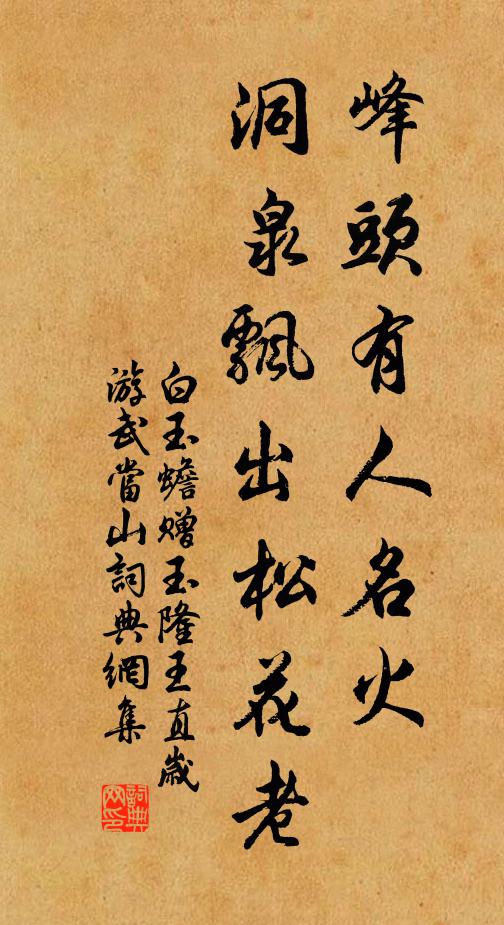 峰頭有人名火
洞泉飄出松花老
白玉蟾赠玉隆王直歲
游武當山詞典網集
詞典网印